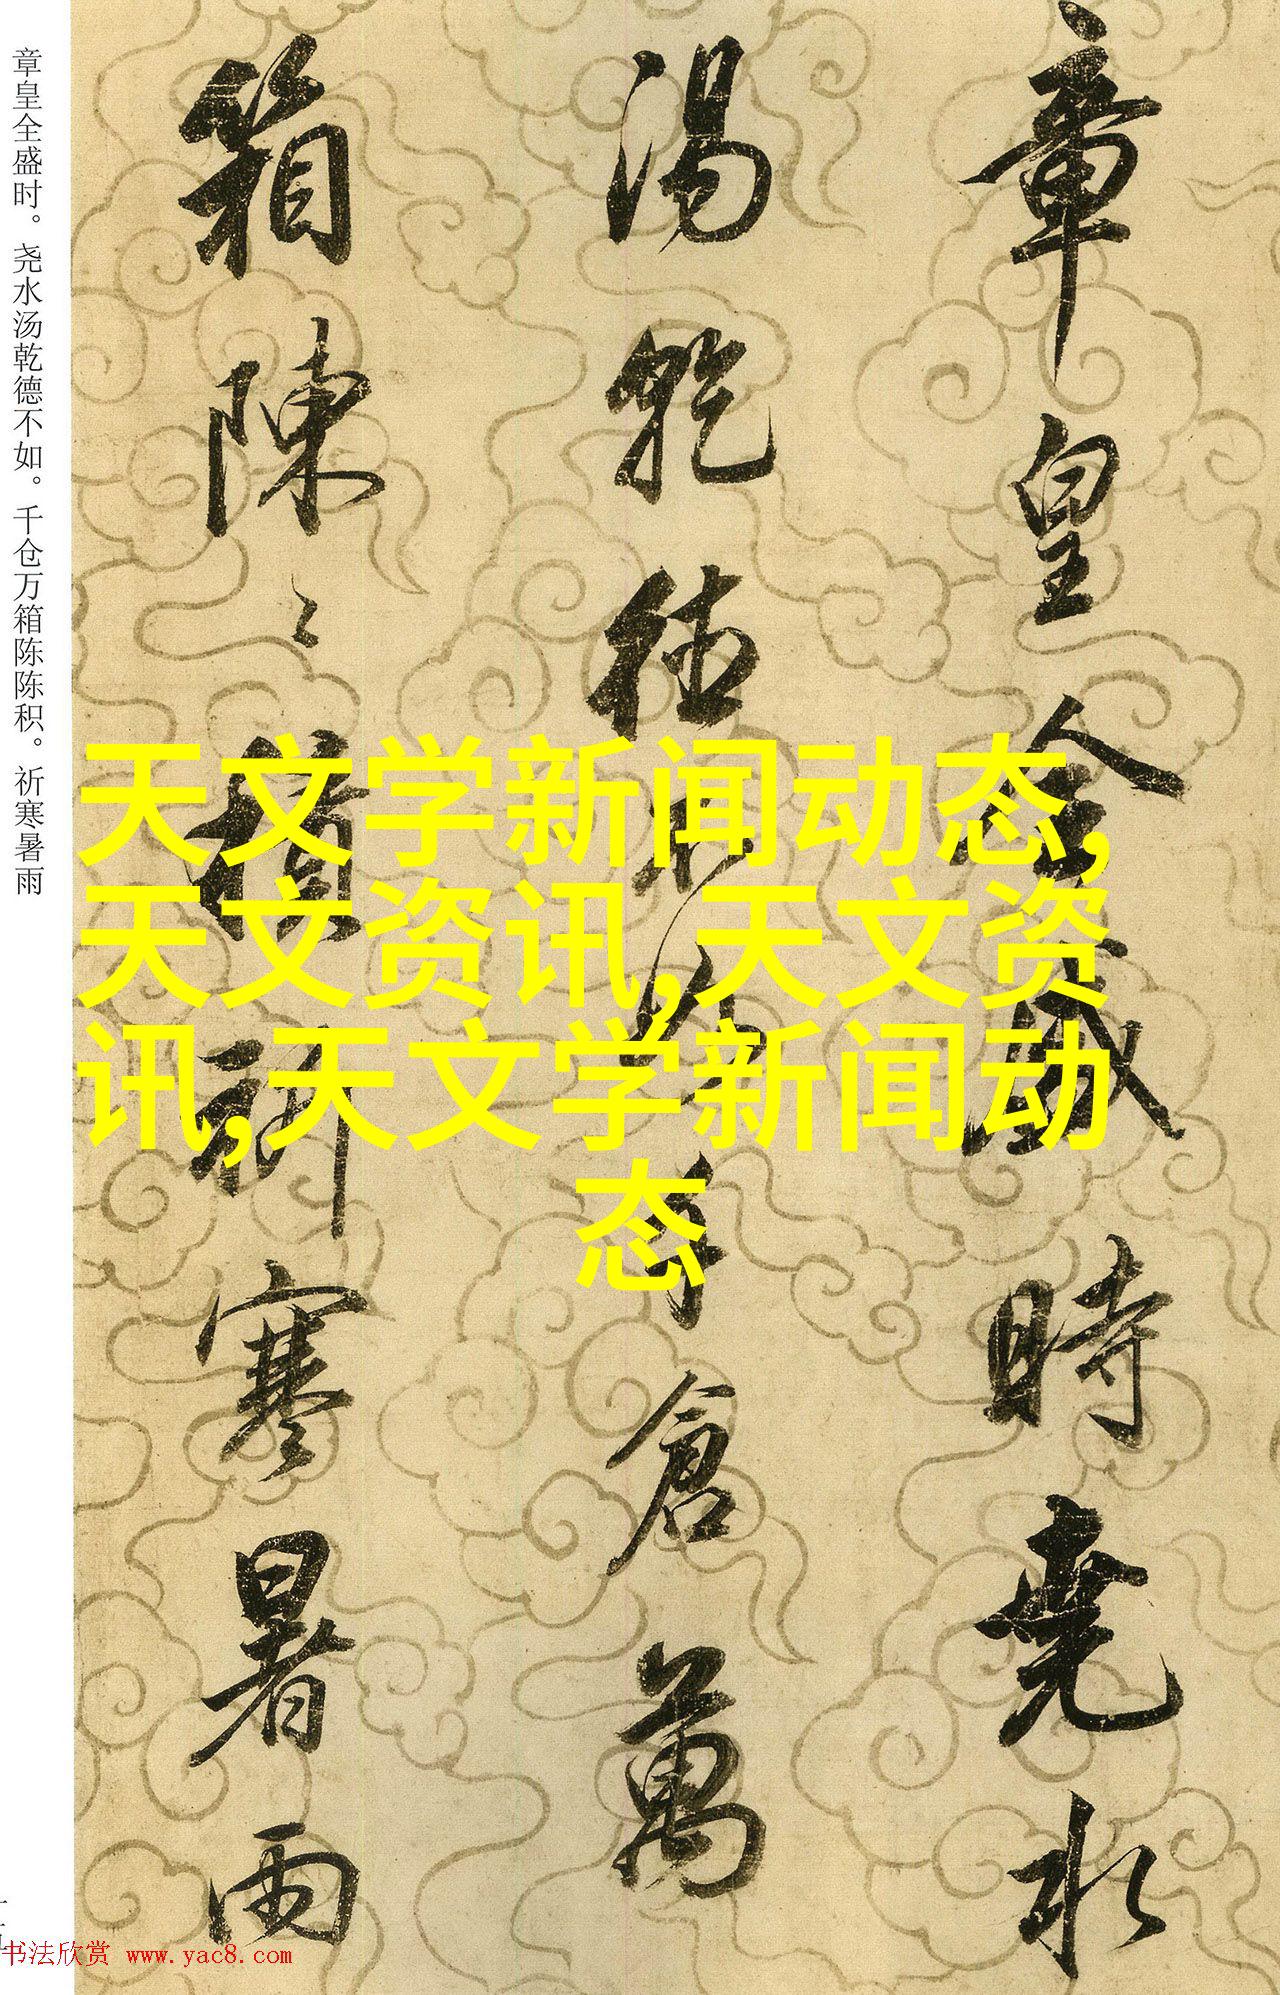 章皇全盛時堯水
湯乾德不如千倉萬
箱陳〻積祈寒暑雨
章皇全盛时。尧水汤乾德不如。千仓万箱陈陈积。祈寒暑雨
天文学新闻动态,
天文资讯,天文资
讯,天文学新闻动
态
书法欣赏 www.yac8.com